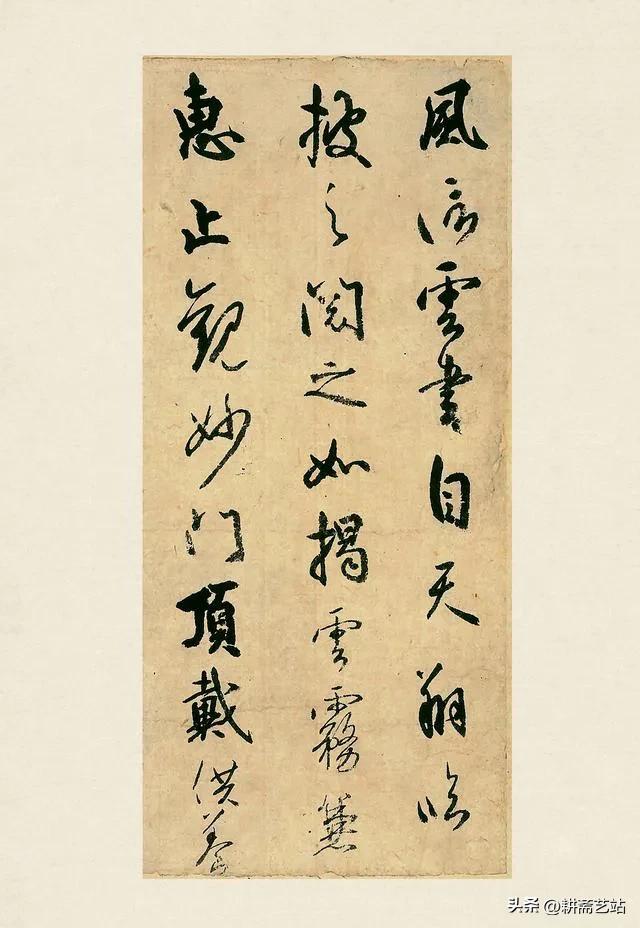 風信雲書自天翔臨
披之閱之如揭雲霧兼
惠止觀妙門頂戴供養
头条 @耕斋艺站